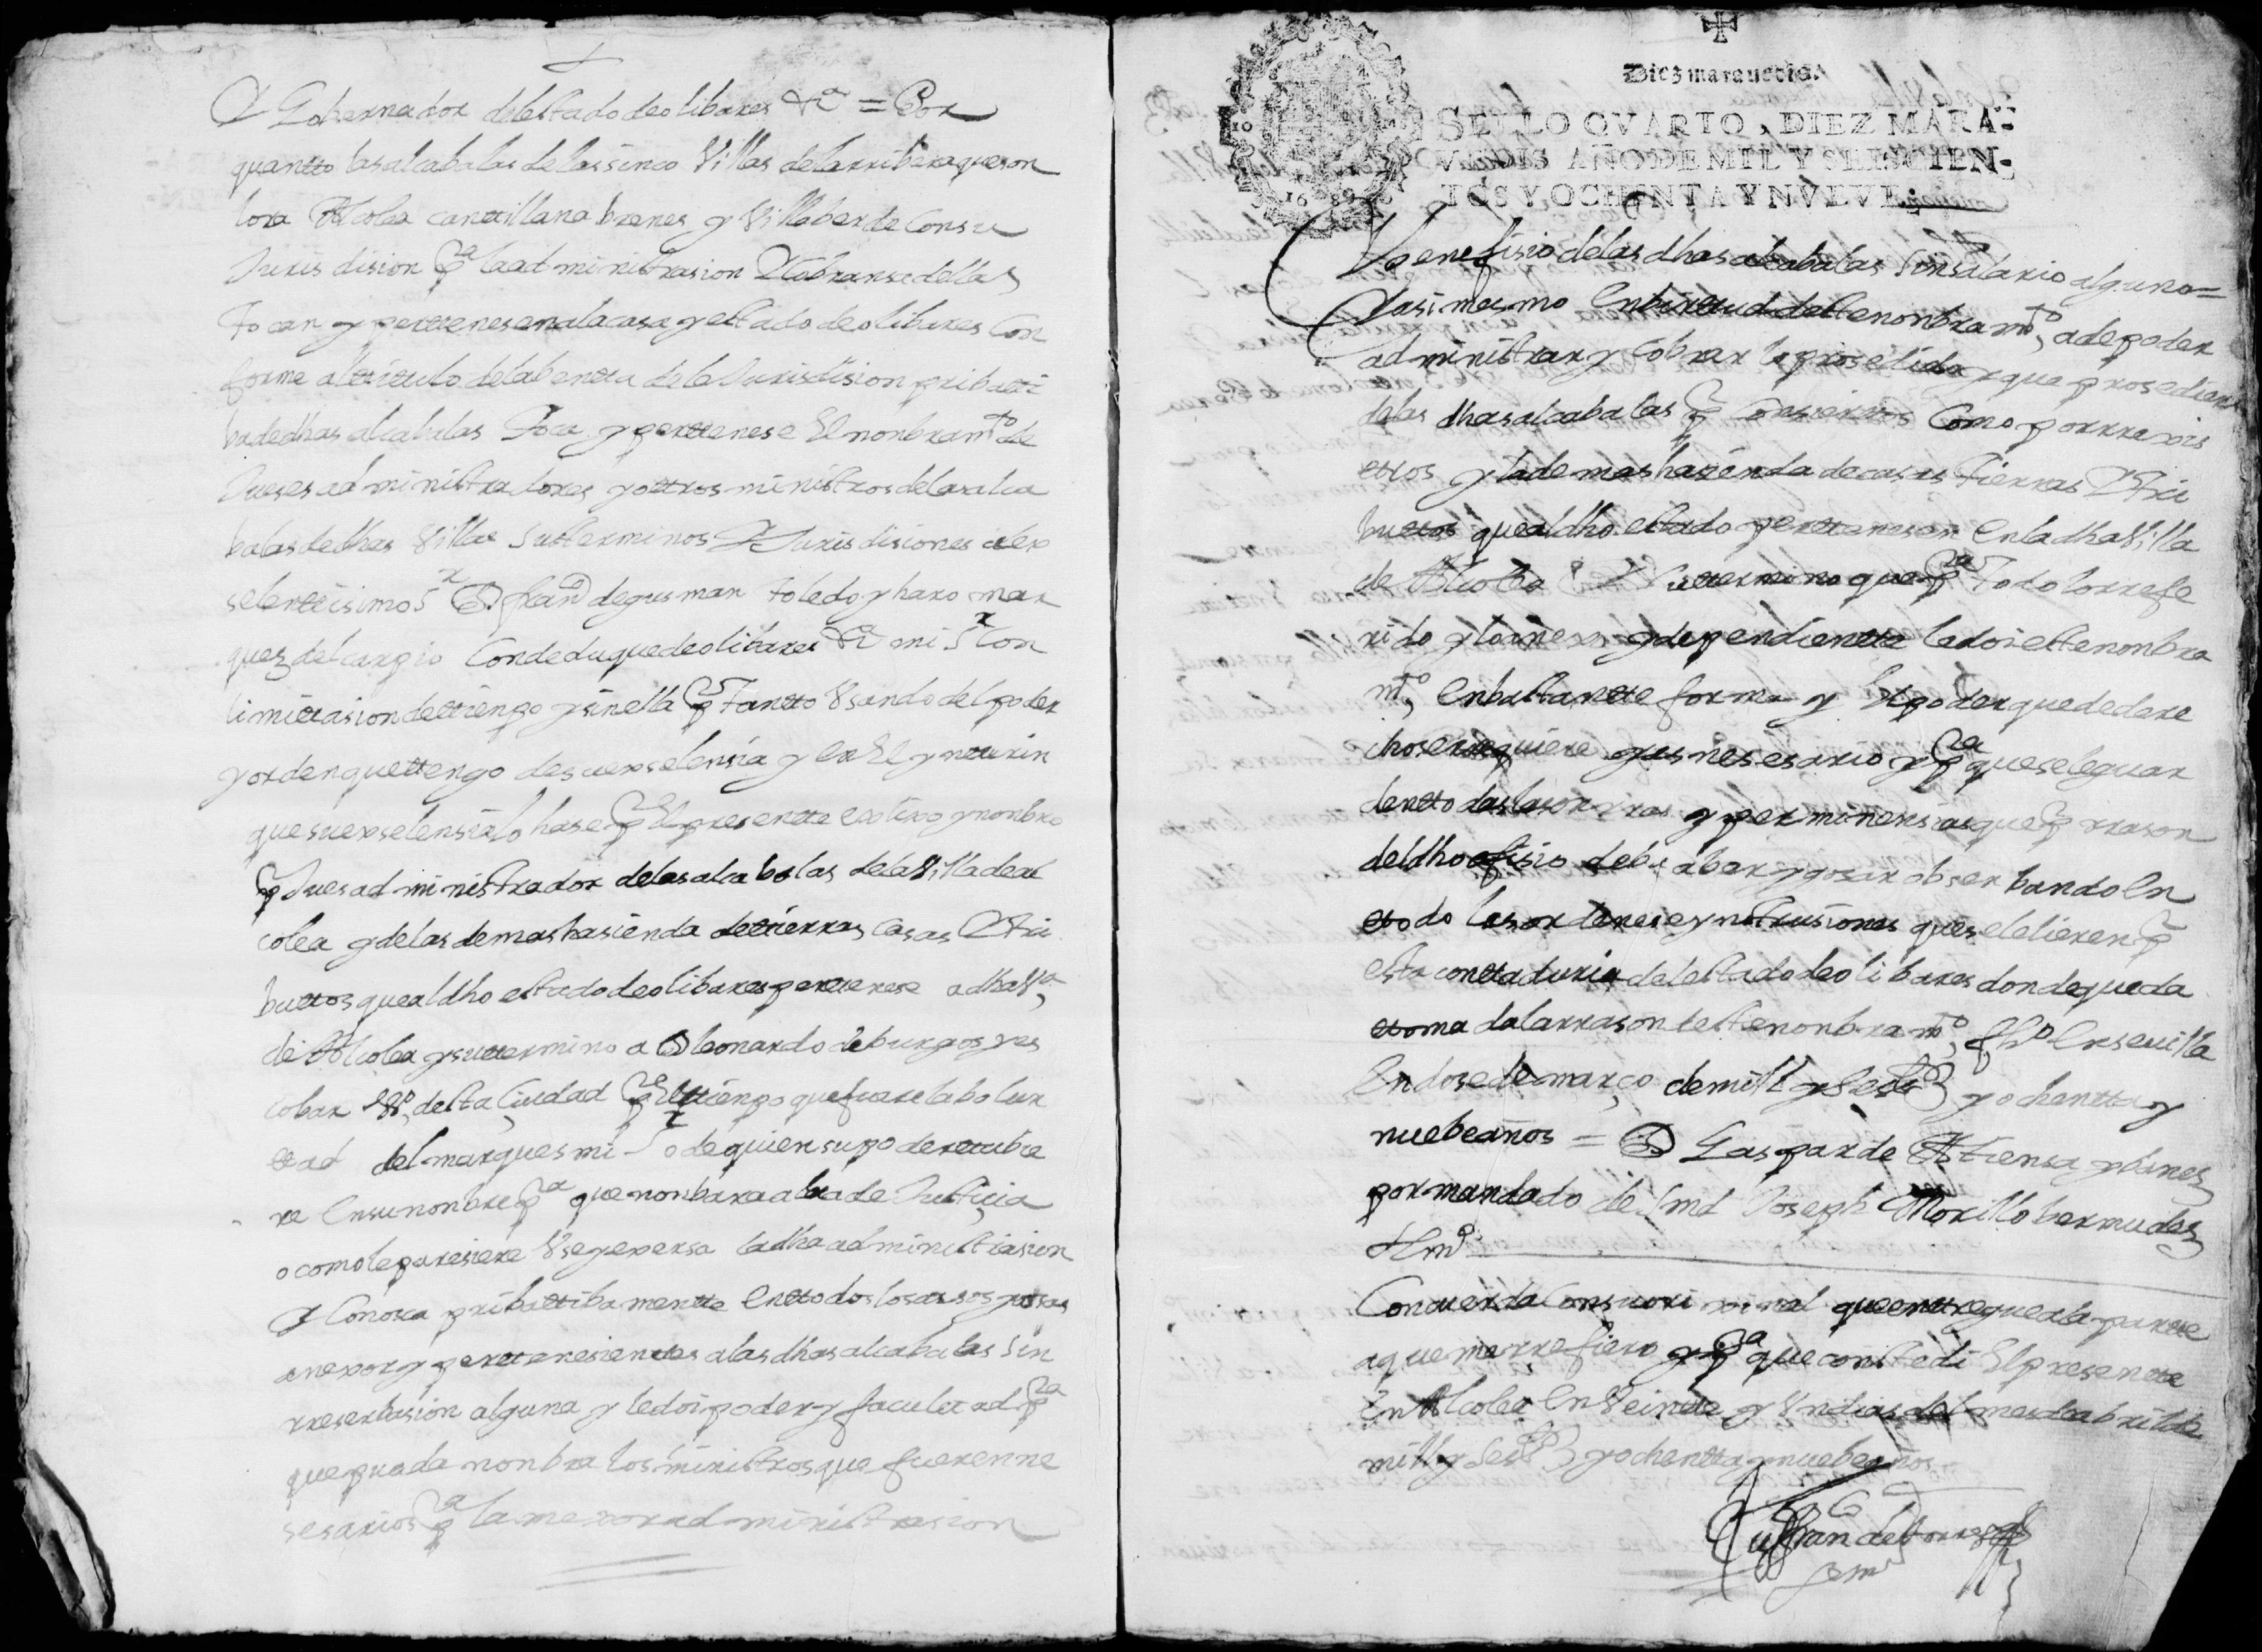 Y Gobernador delestado deolibares &a = Por
quantto lasalcabalas delassinco Villas delarriberaqueson
lora Alcolea cantillana brenes y Villaberde Consu
Jurisdision pa laadministrasion Y Cobransa dellas
tocan y perttenesen alacasa y estado deolibares Con
forme alttittulo delabentta dela Jurisdision pribatti
badedhas alcabalas toca y perttenese El nonbramto de
Jueses administradores y ottros ministros delasalca
balas dedhas Villas sus terminos Y Jurisdisiones alex
selenttisimo Sr D. franco degusman toledo y haro mar
quez del carpio Condeduquedeolibares &a mi Sr Con
limittasion dettienpo y sinella por tantto Usando del poder
y orden quettengo desuexselensia y en El ynterin
que suexselensialo hase por El presentte elixo y nonbro
por Jues administrador delasalcabalas delaVilladeal
colea y delas demas hasienda dettierras Casas Y tri
buttos quealdho estadodeolibares perttenese adhaVa
de Alcolea y suttermino a D leonardo deburgos yes
cobar Vo desta Ciudad por El ttienpo que fuere labolun
ttad del marques mi Sr o de quien supoder ttubie
re Ensunonbre pa que nonbrara de Justiçia
o comole paresiere Use y exersa ladha administrasion
Y Conosca pribattibamentte Enttodos loscasos y cosas
anexos y perttenesienttes alas dhas alcabalas Sin
rreserbasion alguna y ledoi poder y faculttad pa
quepueda nonbra los ministros que fueren ne
sesarios pa lamexor administrasion
Diez marauedis.
SELLO QVARTO, DIEZ MARA-
VEDIS AÑO DE MIL Y SEISCIEN-
TOS Y OCHENTA Y NVEVE.
Y benefisio delas dhas alcabalas Sinsalario alguno =
Y asimesmo Enbirttud destenonbramto, adepoder
administrar y Cobrar loprosedido y que prosediere
delas dhas alcabalas por Consiertos Como por rrexis
ttros y lademas hasienda decasas tierras Y tri
buttos quealdho estado perttenesen Enladha Villa
de Alcolea Y Suttermino que pa todo lorrefe
rido y loanexo y dependientte ledoi este nonbra
mto, Enbastantte forma y El poder quededere
choserrequiere y es nesesario y pa queseleguar
denttodas lasonrras y preminensias que por rrason
deldho ofisio debe aber y gosar obserbando En
ttodo lasordenes e ynstrusiones que sele dieren por
esta conttaduria delestado deolibares dondequeda
ttomada larrason destenonbramto, fho En seuilla
En dose de março de mill y seiss y ochentta y
nuebeaños = D Gaspar de Atiensa y bañez
por mandado de Smd Joseph Morillo bermudez
ssno
Concuerda Consuorixinal que enttregue ala partte
aquemerrefiero y pa que conste di El presentte
En Alcolea En Veintte y Un dias del mes de abril de
mill y seiss y ochentta y nuebe años
Juo fran de torres
ssno